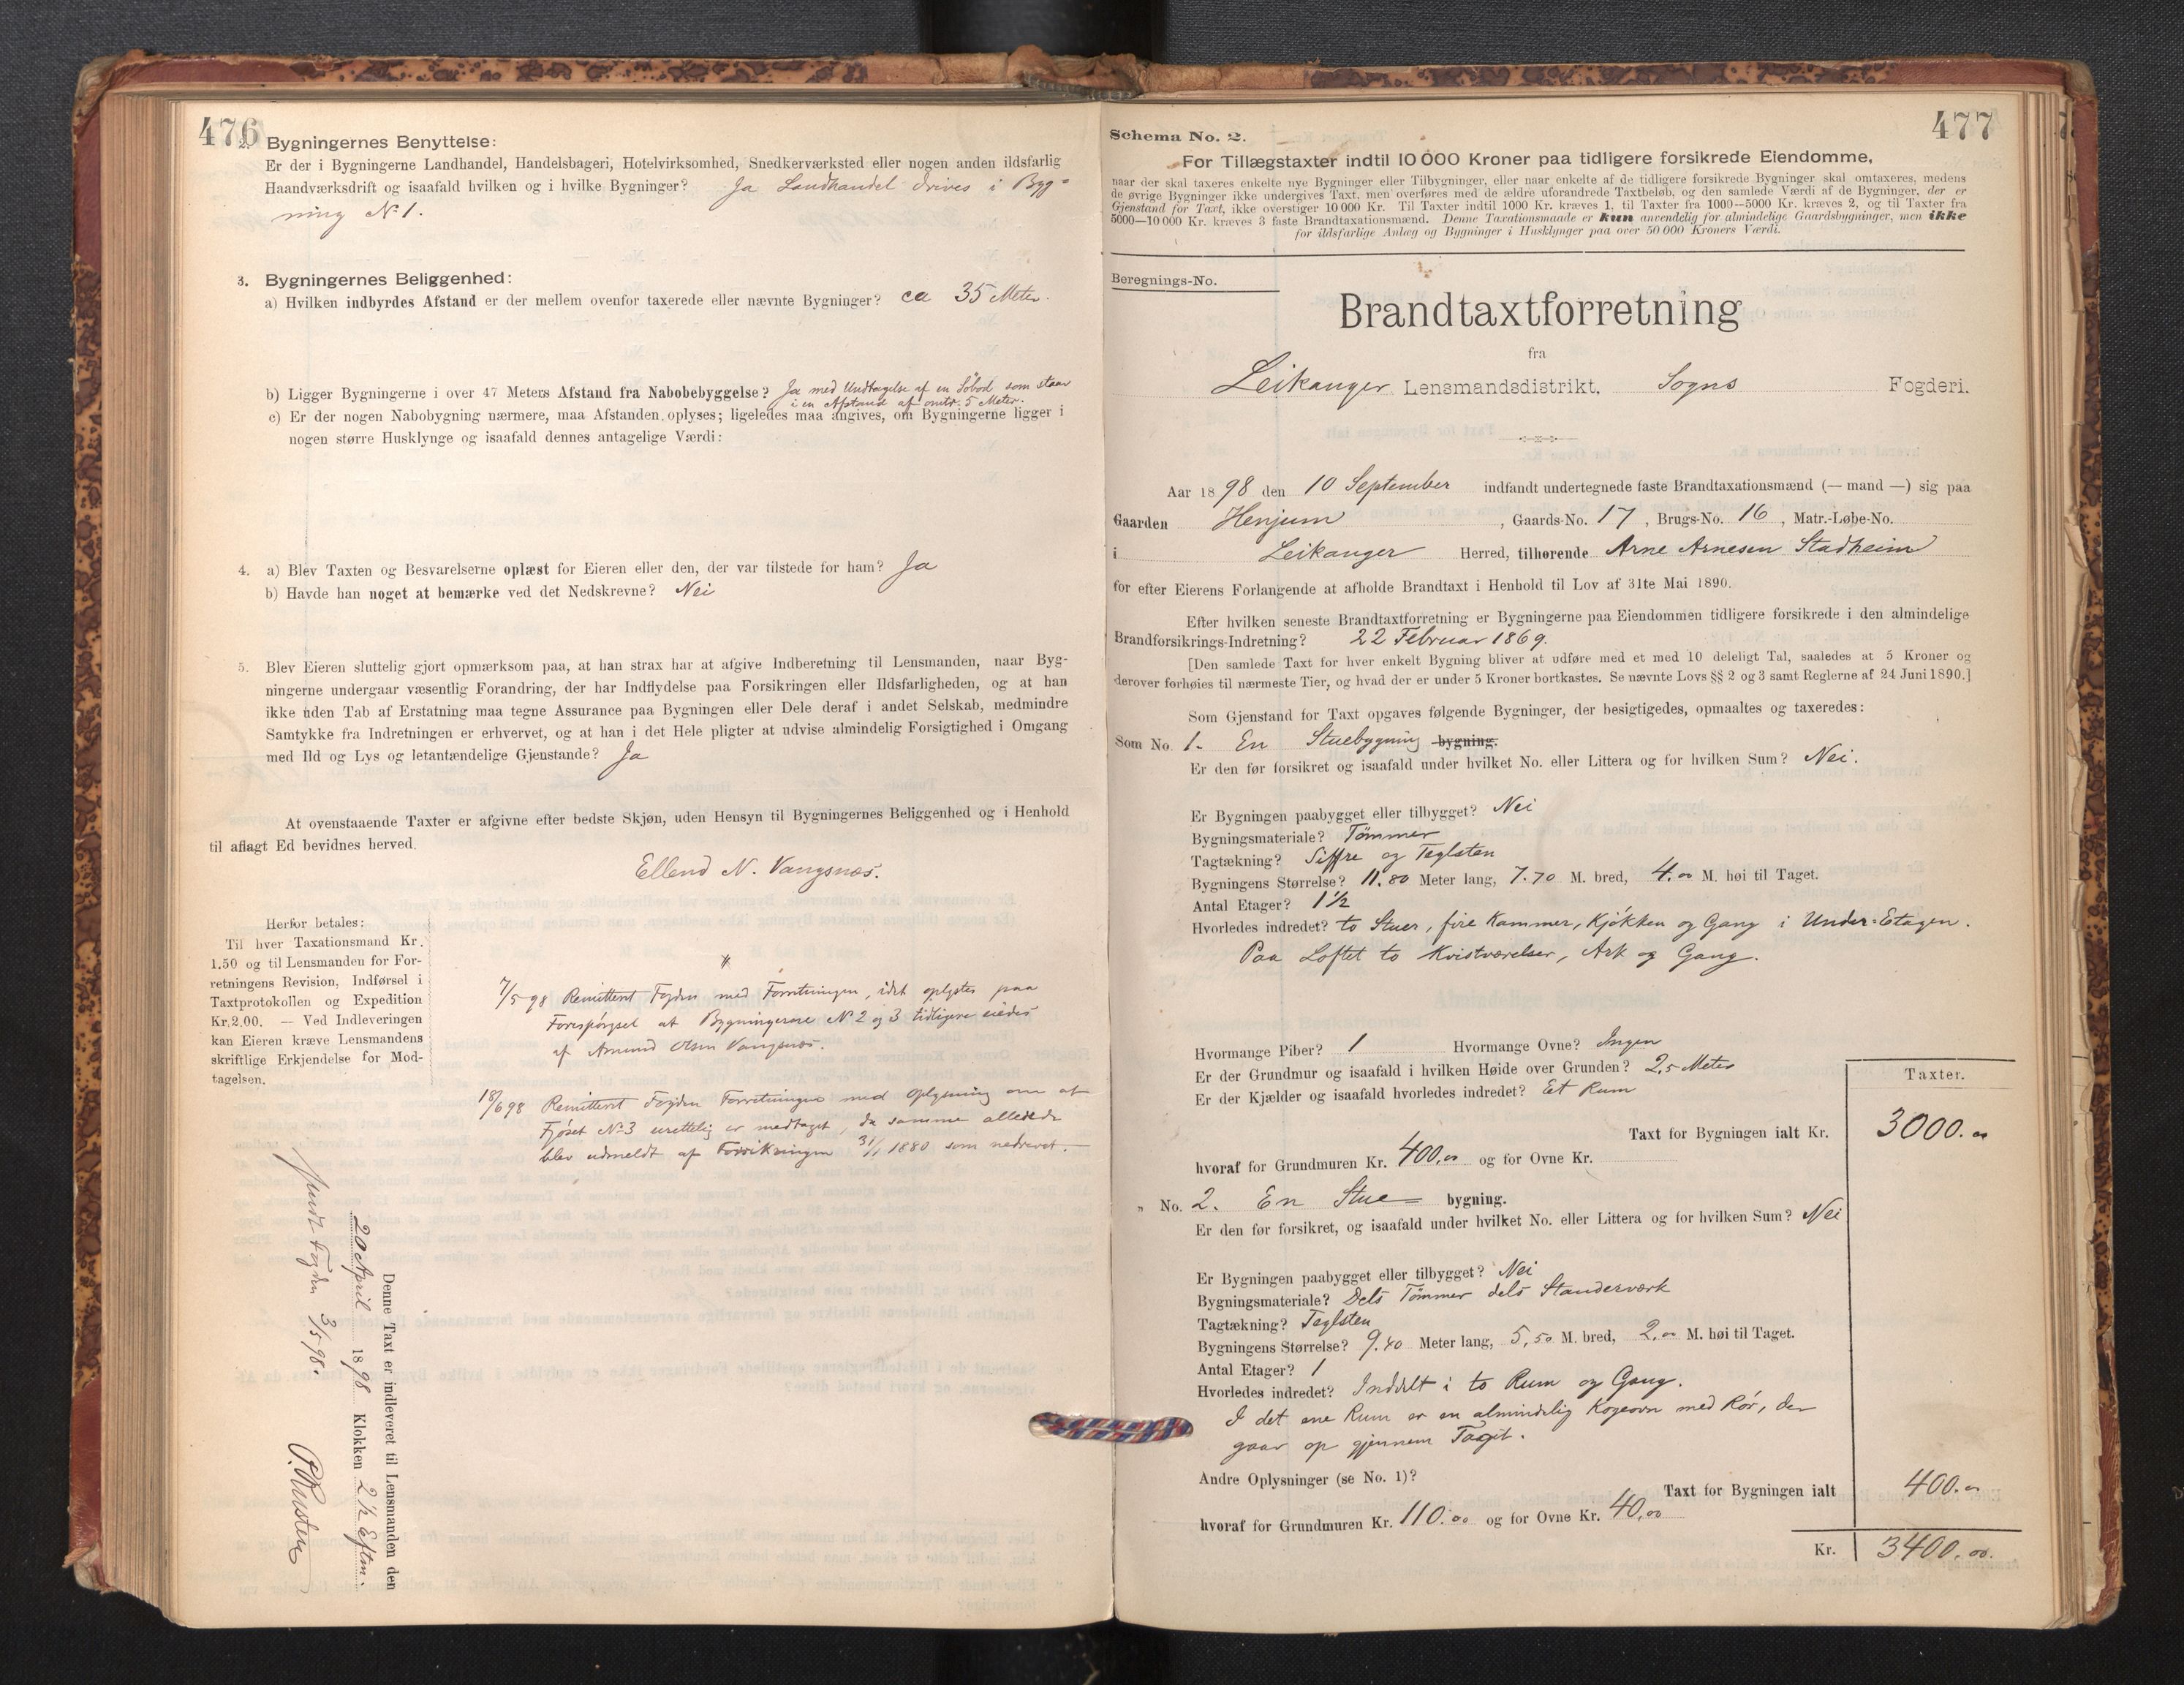 476
2. Bygningernes Benyttelse:
Er der i Bygningerne Landhandel, Handelsbageri, Hotelvirksomhed, Snedkerværksted eller nogen anden ildsfarlig
Haandværksdrift og isaafald hvilken og i hvilke Bygninger? Ja Landhandel drives i Byg=
ning No 1.
3. Bygningernes Beliggenhed:
a) Hvilken indbyrdes Afstand er der mellem ovenfor taxerede eller nævnte Bygninger? ca 35 Meter.
b) Ligger Bygningerne i over 47 Meters Afstand fra Nabobebyggelse? Ja med Undtagelse af en Söbod som staar
i en Afstand af omtr. 5 Meter.
c) Er der nogen Nabobygning nærmere, maa Afstanden oplyses; ligeledes maa angives, om Bygningerne ligger i
nogen større Husklynge og isaafald dennes antagelige Værdi:
4. a) Blev Taxten og Besvarelserne oplæst for Eieren eller den, der var tilstede for ham? Ja
b) Havde han noget at bemærke ved det Nedskrevne? Nei
5. Blev Eieren sluttelig gjort opmærksom paa, at han strax har at afgive Indberetning til Lensmanden, naar Byg-
ningerne undergaar væsentlig Forandring, der har Indflydelse paa Forsikringen eller Ildsfarligheden, og at han
ikke uden Tab af Erstatning maa tegne Assurance paa Bygningen eller Dele deraf i andet Selskab, medmindre
Samtykke fra Indretningen er erhvervet, og at han i det Hele pligter at udvise almindelig Forsigtighed i Omgang
med Ild og Lys og letantændelige Gjenstande? Ja
At ovenstaaende Taxter er afgivne efter bedste Skjøn, uden Hensyn til Bygningernes Beliggenhed og i Henhold
til aflagt Ed bevidnes herved.
Ellend N. Vangsnæs.
Herfor betales:
Til hver Taxationsmand Kr.
1.50 og til Lensmanden for For-
retningens Revision, Indførsel i
Taxtprotokollen og Expedition
Kr. 2.00. — Ved Indleveringen
kan Eieren kræve Lensmandens
skriftlige Erkjendelse for Mod-
tagelsen.
7/5 98 Remitteret Fogden med Forretningen, idet oplystes paa
Forespörgsel at Bygningerne No 2 og 3 tidligere eiedes
af Amund Olsen Vangsnæs.
18/6 98 Remitteret Fogden Forretningen med Oplysning om at
Fjöset No 3 urettelig er medtaget, da samme allerede
blev udmeldt af Forsikringen 31/1 1880 som nedrevet.
Denne Taxt er indleveret til Lensmanden den
20 April 1898 Klokken 2 1/2 Eftm.
Sendt Fogden 3/5 98.
477
Schema No. 2.
For Tillægstaxter indtil 10 000 Kroner paa tidligere forsikrede Eiendomme,
naar der skal taxeres enkelte nye Bygninger eller Tilbygninger, eller naar enkelte af de tidligere forsikrede Bygninger skal omtaxeres, medens
de øvrige Bygninger ikke undergives Taxt, men overføres med de ældre uforandrede Taxtbeløb, og den samlede Værdi af de Bygninger, der er
Gjenstand for Taxt, ikke overstiger 10 000 Kr. Til Taxter indtil 1000 Kr. kræves 1, til Taxter fra 1000—5000 Kr. kræves 2, og til Taxter fra
5000—10 000 Kr. kræves 3 faste Brandtaxationsmænd. Denne Taxationsmaade er kun anvendelig for almindelige Gaardsbygninger, men ikke
for ildsfarlige Anlæg og Bygninger i Husklynger paa over 50 000 Kroners Værdi.
Beregnings-No.
Brandtaxtforretning
fra
Leikanger Lensmandsdistrikt, Sogns Fogderi.
Aar 1898 den 10 September indfandt undertegnede faste Brandtaxationsmænd (— mand —) sig paa
Gaarden Henjum, Gaards-No. 17, Brugs-No. 16, Matr.-Løbe-No.
i Leikanger Herred, tilhørende Arne Arnesen Stadheim
for efter Eierens Forlangende at afholde Brandtaxt i Henhold til Lov af 31te Mai 1890.
Efter hvilken seneste Brandtaxtforretning er Bygningerne paa Eiendommen tidligere forsikrede i den almindelige
Brandforsikrings-Indretning? 22 Februar 1869.
[Den samlede Taxt for hver enkelt Bygning bliver at udføre med et med 10 deleligt Tal, saaledes at 5 Kroner og
derover forhøies til nærmeste Tier, og hvad der er under 5 Kroner bortkastes. Se nævnte Lovs §§ 2 og 3 samt Reglerne af 24 Juni 1890.]
Som Gjenstand for Taxt opgaves følgende Bygninger, der besigtigedes, opmaaltes og taxeredes:
Som No. 1. En Stuebygning bygning.
Er den før forsikret og isaafald under hvilket No. eller Littera og for hvilken Sum? Nei.
Er Bygningen paabygget eller tilbygget? Nei
Bygningsmateriale? Tömmer
Tagtækning? Siffre og Teglsten
Bygningens Størrelse? 11.80 Meter lang, 7.70 M. bred, 4.00 M. høi til Taget.
Antal Etager? 1 1/2
Hvorledes indredet? to Stuer, fire Kammer, Kjökken og Gang i Under=Etagen.
Paa Loftet to Kvistværelser, Ark og Gang.
Hvormange Piber? 1 Hvormange Ovne? Ingen
Er der Grundmur og isaafald i hvilken Høide over Grunden? 2,5 Meter
Er der Kjælder og isaafald hvorledes indredet? Et Rum
Taxter.
Taxt for Bygningen ialt Kr. 3000.00
hvoraf for Grundmuren Kr. 400,00 og for Ovne Kr.
" No. 2. En Stue= bygning.
Er den før forsikret, og isaafald under hvilket No. eller Littera og for hvilken Sum? Nei
Er Bygningen paabygget eller tilbygget? Nei
Bygningsmateriale? Dels Tömmer dels Standerværk
Tagtækning? Teglsten
Bygningens Størrelse? 9.40 Meter lang, 5,50 M. bred, 2,00 M. høi til Taget.
Antal Etager? 1
Hvorledes indredet? Inddelt i to Rum og Gang.
I det ene Rum er en almindelig Kogeovn med Rör, der
gaar op gjennem Taget.
Andre Oplysninger (se No. 1)?
Taxt for Bygningen ialt 400.00
hvoraf for Grundmuren Kr. 110.00 og for Ovne Kr. 40,00
Kr. 3400.00.